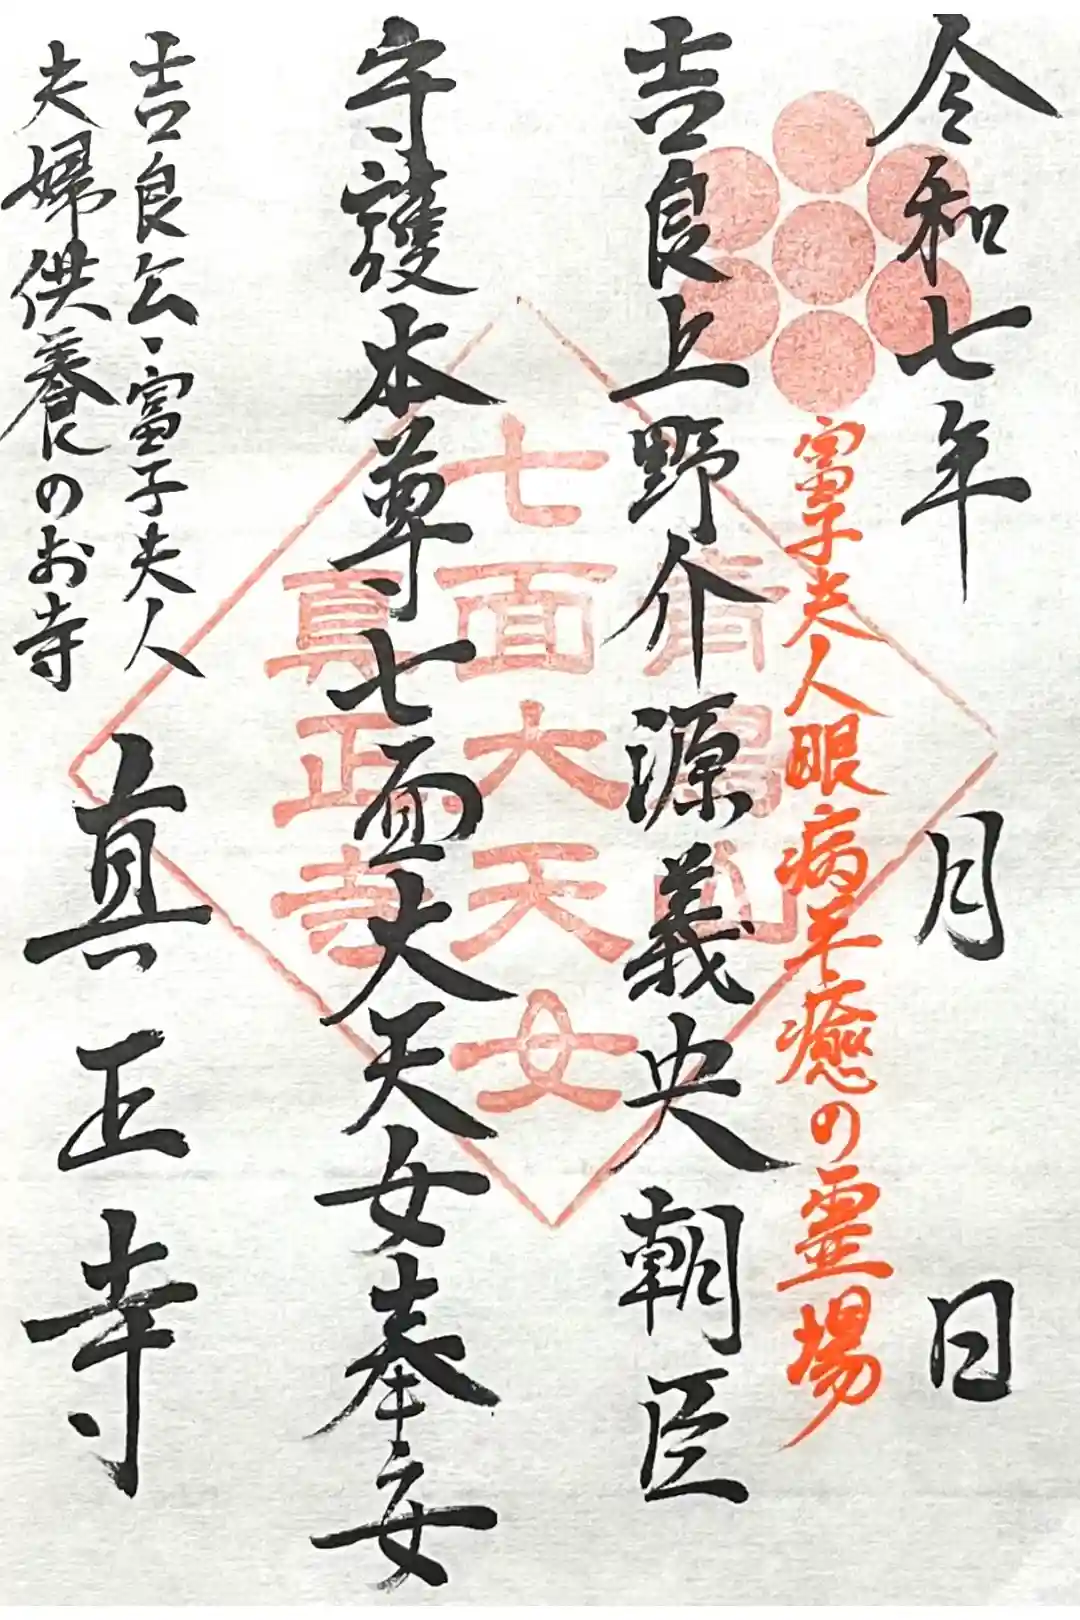 令和七年 月 日
富子夫人眼病平癒の霊場
吉良上野介源義央朝臣
守護本尊七面大天女奉安
七面大天女
真正寺
吉良公・富子夫人
夫婦供養のお寺
真正寺